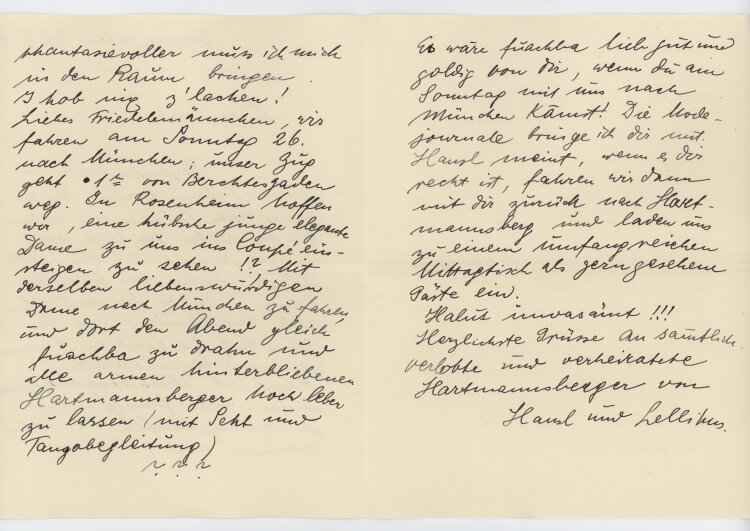 phantasievoller muss ich mich
in den Raum bringen.
I hob nix z'lachen!
Liebes Friedelmännchen, wir
fahren am Sonntag 26.
nach München, unser Zug
geht 1 von Berchtesgaden
weg. In Rosenheim hoffen
wir, eine hübsche junge elegante
Dame zu uns ins Coupé ein-
steigen zu sehen !? Mit
derselben liebenswürdigen
Dame nach München zu fahren,
und dort den Abend gleich
fuachba zu drahn und
alle armen hinterbliebenen
Hartmannsberger hoch leben
zu lassen (mit Sekt und
Tangobegleitung)
? ? ?
Es wäre fuachba lieb gut und
goldig von dir, wenn du am
Sonntag mit uns nach
München kämst! Die Mode-
journale bringe ich dir mit.
Hansl meint, wenn es dir
recht ist, fahren wir dann
mit dir zurück nach Hart-
mannsberg und laden uns
zu einem umfangreichen
Mittagtisch als gerngesehene
Gäste ein.
unvasämt !!!
Herzlichste Grüsse an sämtliche
verlobte und verheiratete
Hartmannsberger von
Hansl und